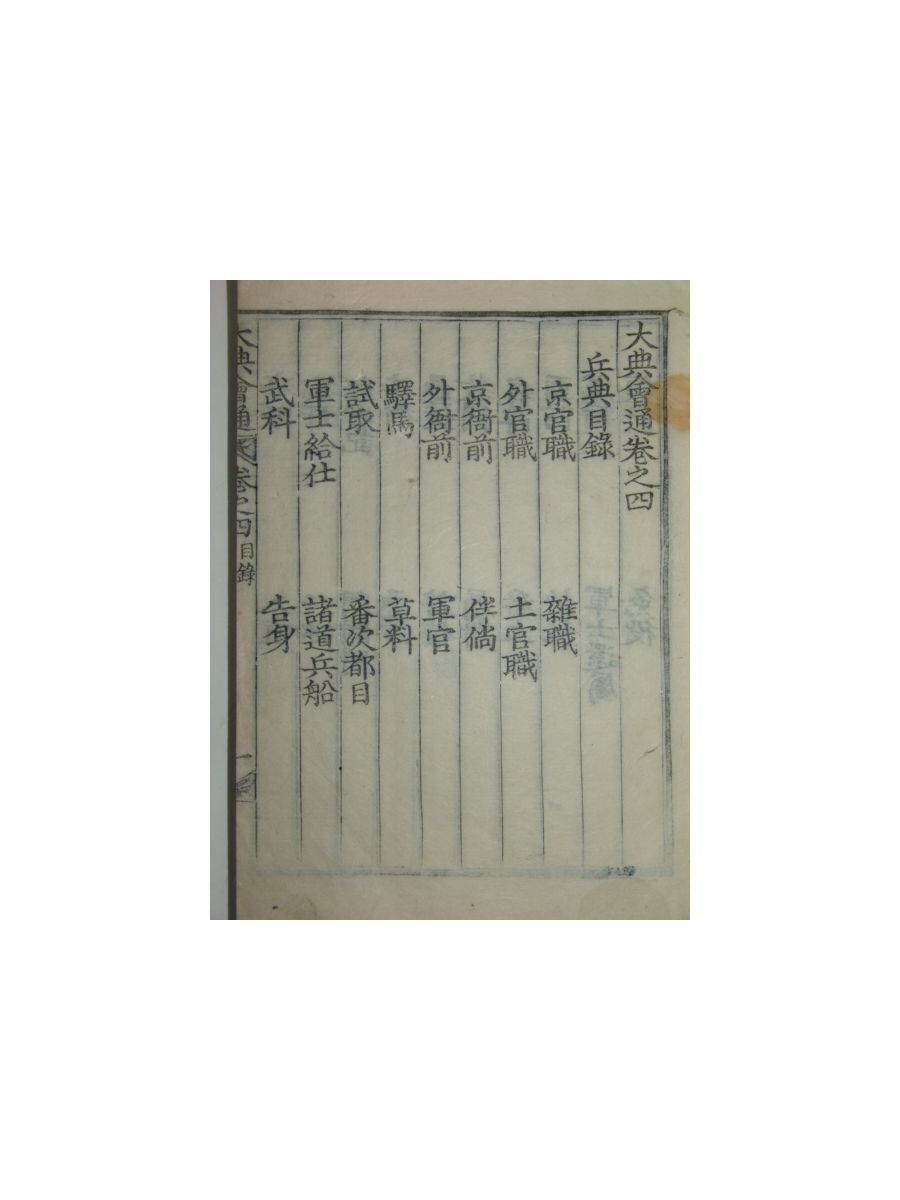 大典會通卷之四
兵典目錄
京官職 雜職
外官職 土官職
京衙前 伴倘
外衙前 軍官
驛馬 草料
試取 番次都目
軍士給仕 諸道兵船
武科 告身
大典會通 卷之四 目錄 一